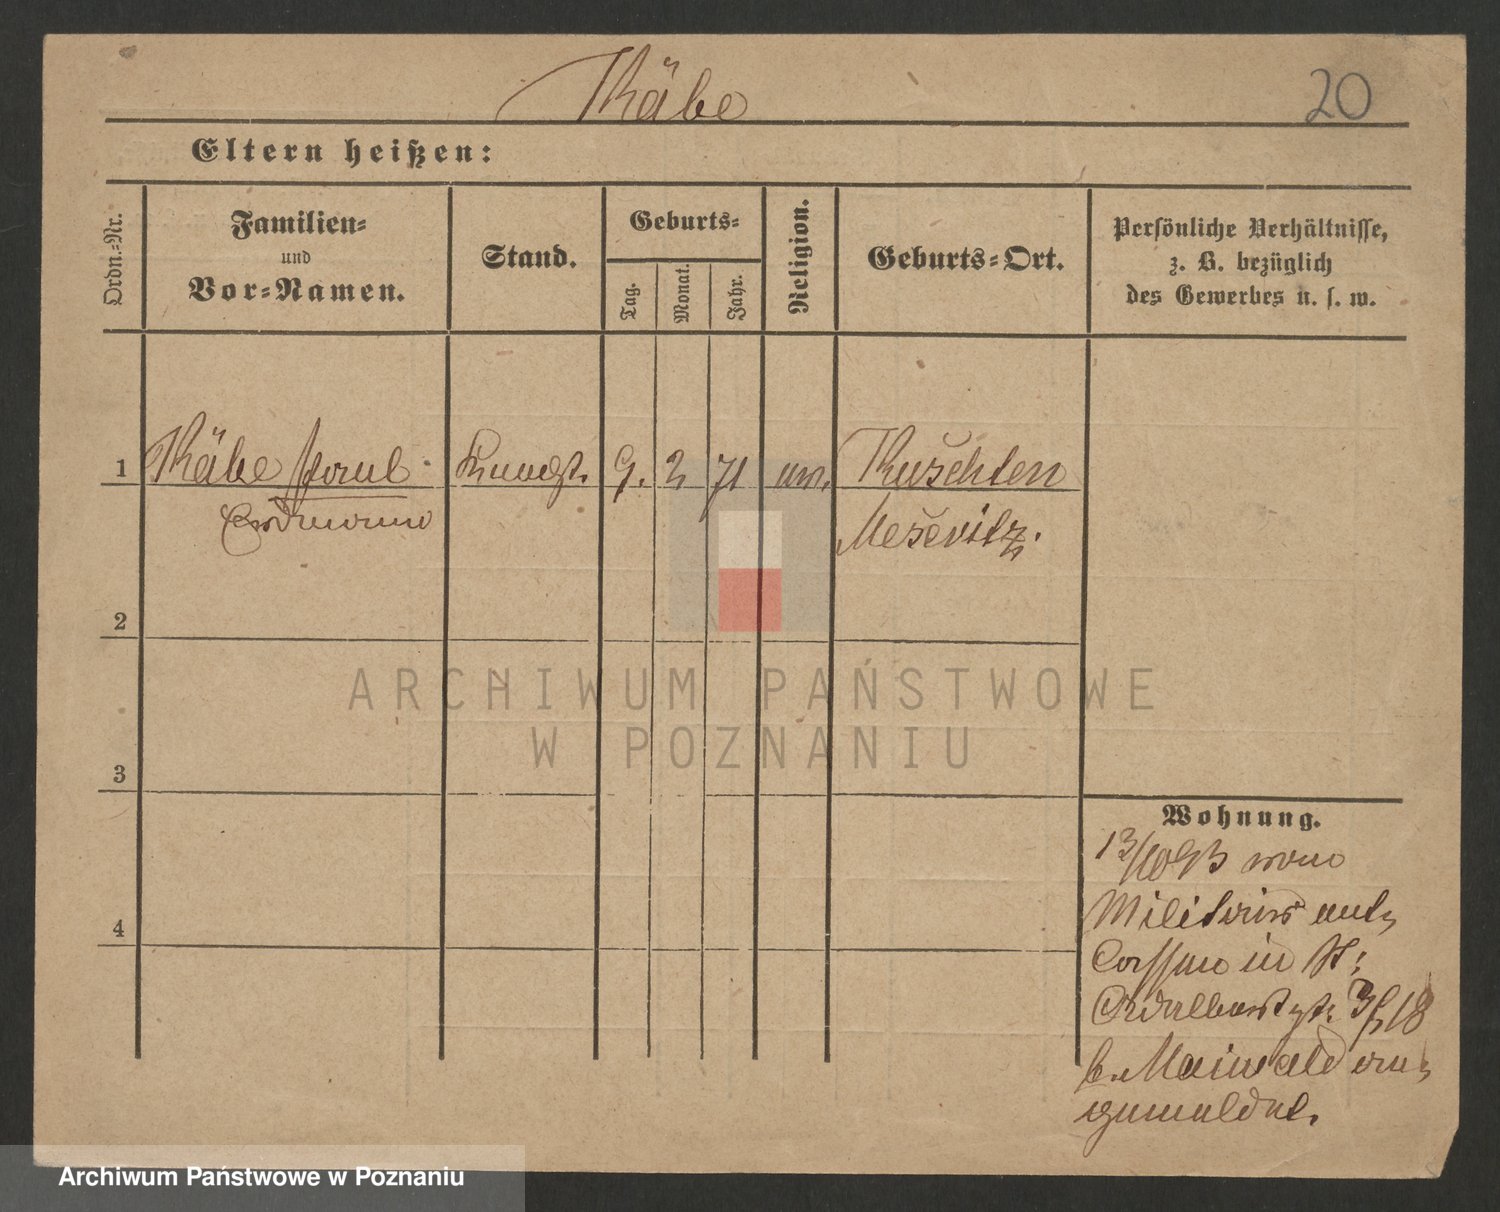 Räbe
20
Eltern heißen:
Ordn.-Nr.
Familien-
und
Vor-Namen.
Stand.
Geburts-
Tag.
Monat.
Jahr.
Religion.
Geburts-Ort.
Persönliche Verhältnisse,
z. B. bezüglich
des Gewerbes u. s. w.
1 Räbe Paul 9. 2 71 Kuschten
Erdmann Meseritz.
2
3
4
Wohnung.
13/10 93 vom
Militär ent,
lassen in St:
Adalbertstr. 3/ 18
b. Maiwald an,
gemeldet.
ARCHIWUM PAŃSTWOWE
W POZNANIU
Archiwum Państwowe w Poznaniu